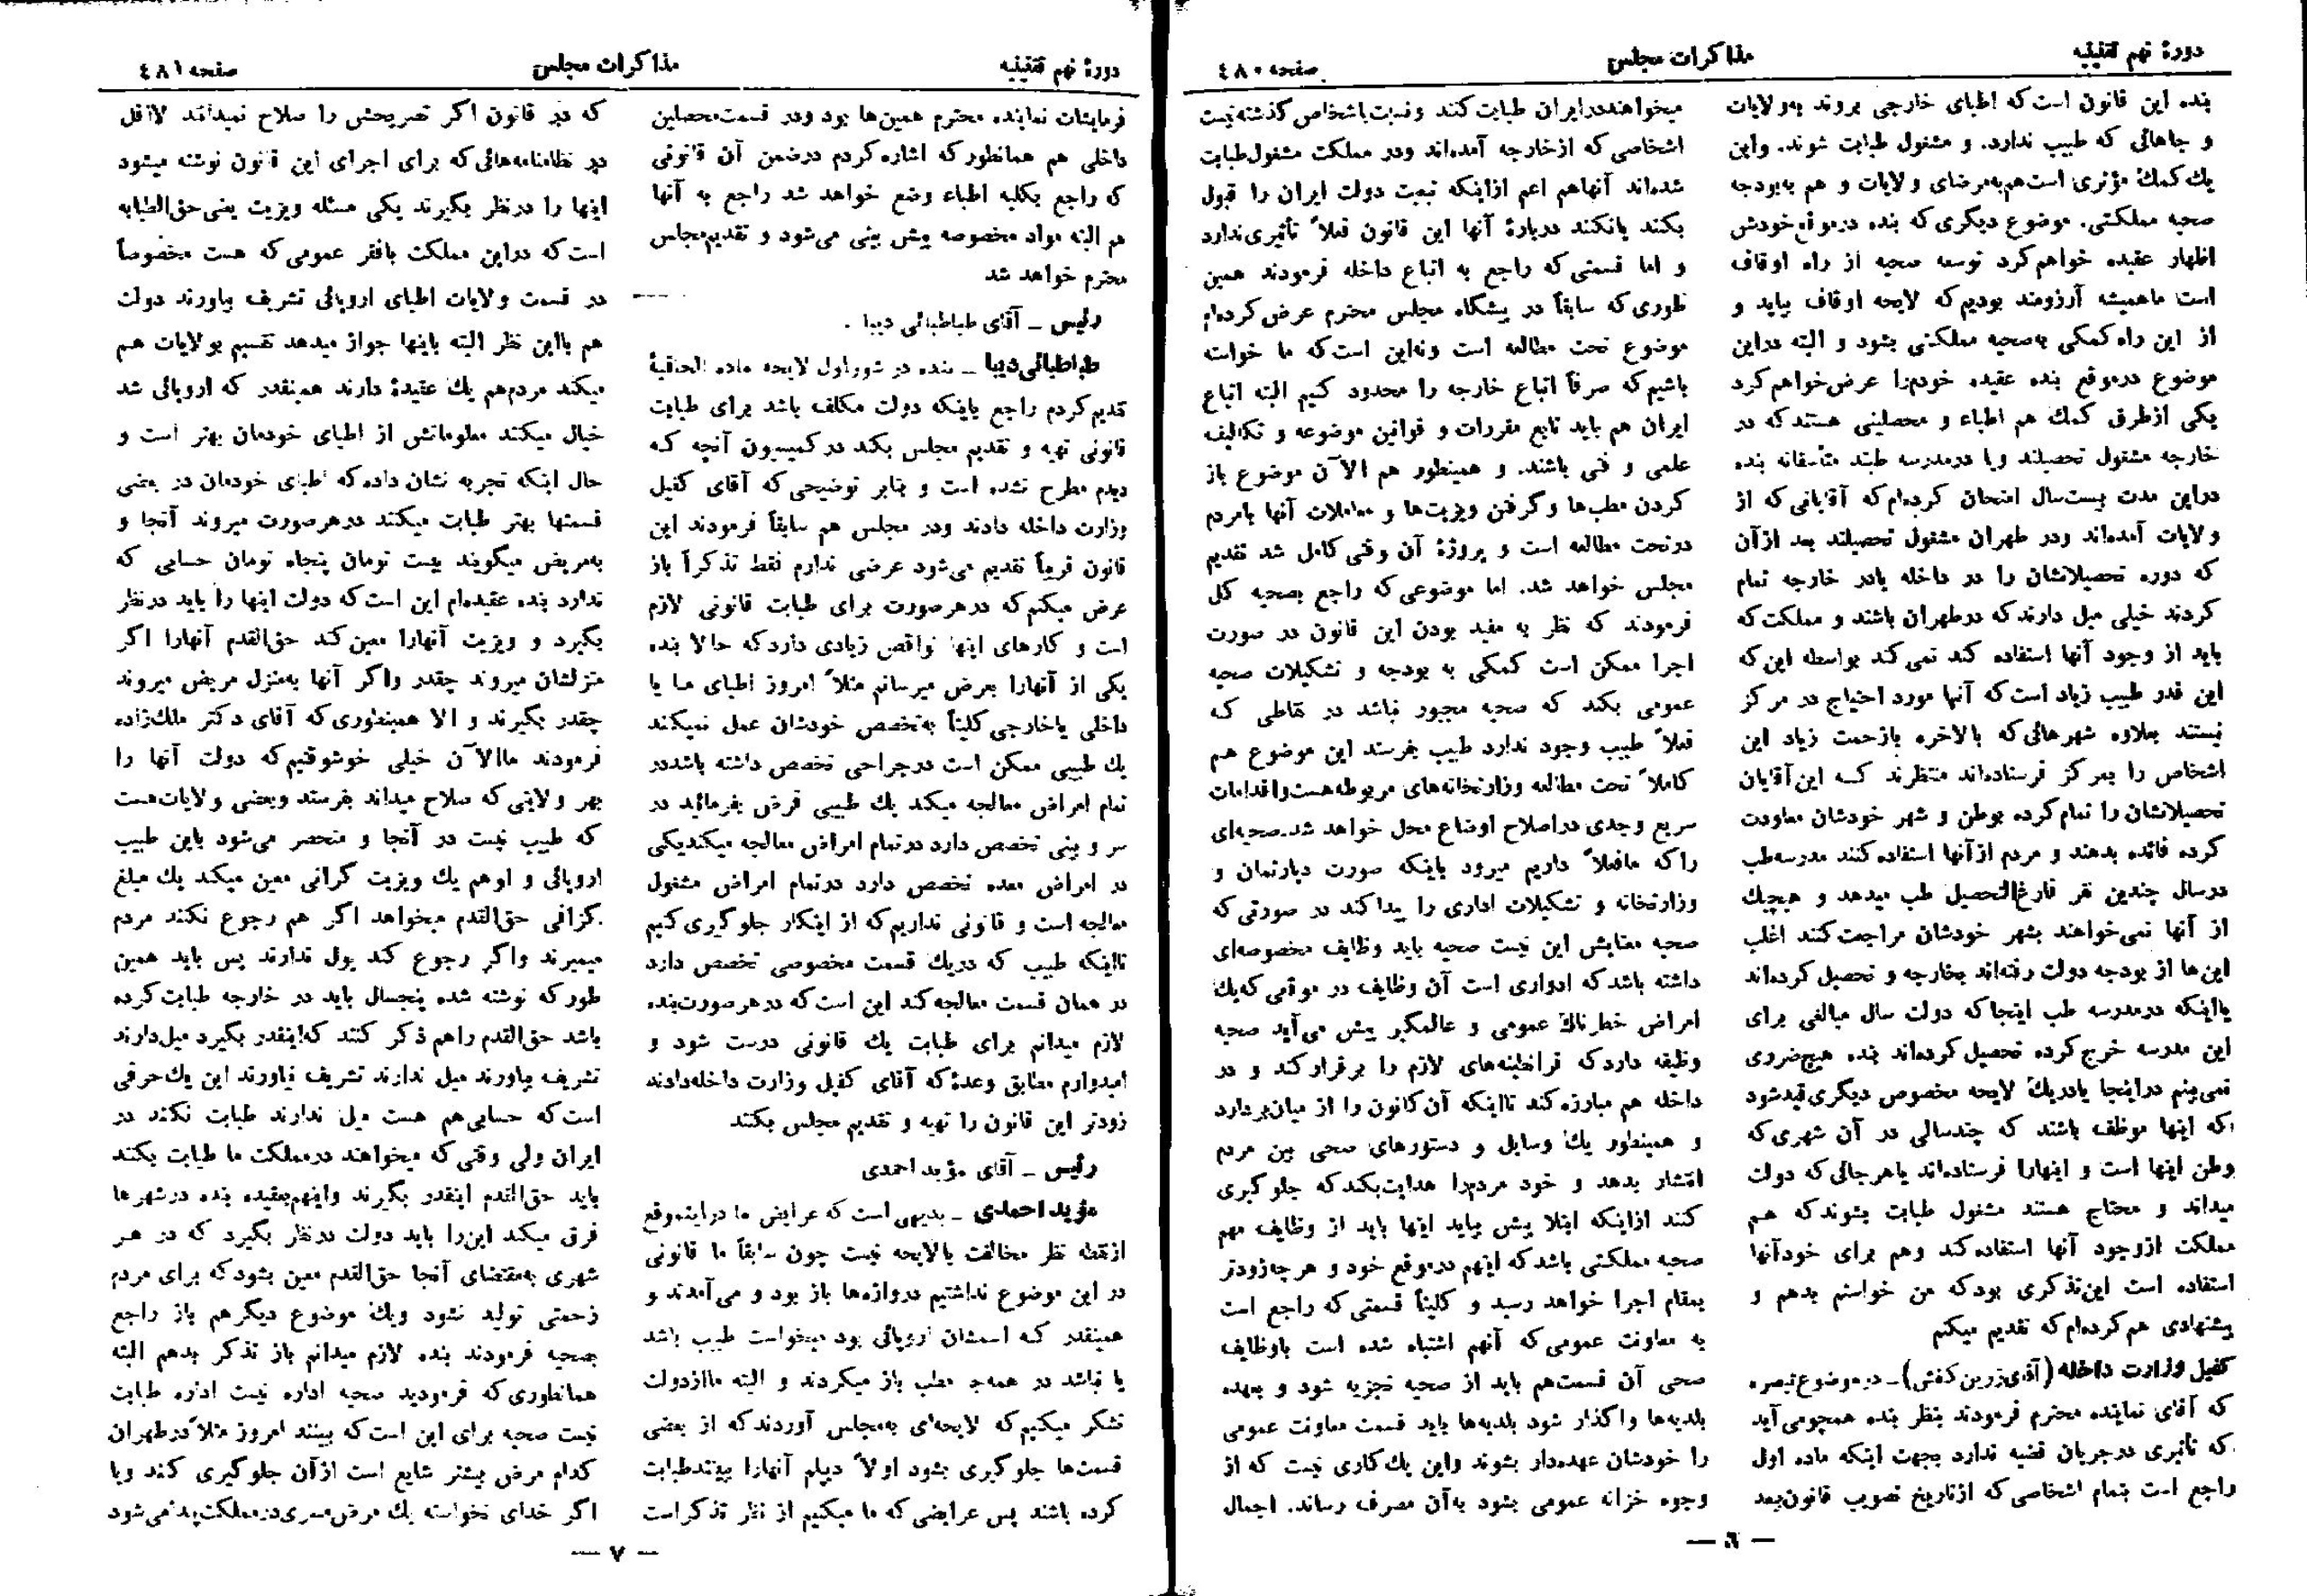 دورهٔ نهم تقنینیه
مذاکرات مجلس
صفحه ٤٨٠
بنده این قانون است که اطبای خارجی بروند بولایات
و جاهائی که طبیب ندارد. و مشغول طبابت شوند. واین
یك کمك مؤثری است هم به مرضای ولایات و هم به بودجه
صحیه مملکتی. موضوع دیگری که بنده درموقع خودش
اظهار عقیده خواهم کرد توسعه صحیه از راه اوقاف
است ماهمیشه آرزومند بودیم که لایحه اوقاف بیاید و
از این راه کمکی به صحیه مملکتی بشود و البته دراین
موضوع درموقع بنده عقیده خودم را عرض خواهم کرد
یکی ازطرق کمك هم اطباء و محصلینی هستند که در
خارجه مشغول تحصیلند ویا درمدرسه طبند متأسفانه بنده
دراین مدت بیست سال امتحان کرده ام که آقایانی که از
ولایات آمده اند ودر طهران مشغول تحصیلند بعد ازآن
که دوره تحصیلاتشان را در داخله یادر خارجه تمام
کردند خیلی میل دارند که درطهران باشند و مملکت که
باید از وجود آنها استفاده کند نمی کند بواسطه این که
این قدر طبیب زیاد است که آنها مورد احتیاج در مرکز
نیستند بعلاوه شهرهائی که بالاخره بازحمت زیاد این
اشخاص را بمرکز فرستاده اند منتظرند کـه این آقایان
تحصیلاتشان را تمام کرده بوطن و شهر خودشان معاودت
کرده فائده بدهند و مردم ازآنها استفاده کنند مدرسه طب
درسال چندین نفر فارغ التحصیل طب میدهد و هیچیك
از آنها نمی خواهند بشهر خودشان مراجعت کنند اغلب
این ها از بودجه دولت رفته اند بخارجه و تحصیل کرده اند
یااینکه درمدرسه طب اینجا که دولت سال مبالغی برای
این مدرسه خرج کرده تحصیل کرده اند بنده هیچ ضرری
نمی بینم دراینجا یادریك لایحه مخصوص دیگری قید شود
که اینها موظف باشند که چندسالی در آن شهری که
وطن اینها است و اینهارا فرستاده اند یاهرجائی که دولت
میداند و محتاج هستند مشغول طبابت بشوند که هم
مملکت ازوجود آنها استفاده کند وهم برای خودآنها
استفاده است این تذکری بود که من خواستم بدهم و
پیشنهادی هم کرده ام که تقدیم میکنم
کفیل وزارت داخله (آقای زرین کفش) ــ درموضوع تبصره
که آقای نماینده محترم فرمودند بنظر بنده همچو می آید
که تأثیری درجریان قضیه ندارد بجهت اینکه ماده اول
راجع است بتمام اشخاصی که ازتاریخ تصویب قانون بعد
میخواهند درایران طبابت کنند ونسبت باشخاص گذشته نیست
اشخاصی که ازخارجه آمده اند ودر مملکت مشغول طبابت
شده اند آنهاهم اعم ازاینکه تبعیت دولت ایران را قبول
بکنند یانکنند دربارهٔ آنها این قانون فعلاً تأثیری ندارد
و اما قسمتی که راجع به اتباع داخله فرمودند همین
طوری که سابقاً در پیشگاه مجلس محترم عرض کرده ام
موضوع تحت مطالعه است ونه این است که ما خواسته
باشیم که صرفاً اتباع خارجه را محدود کنیم البته اتباع
ایران هم باید تابع مقررات و قوانین موضوعه و تکالیف
علمی و فنی باشند. و همینطور هم الآن موضوع باز
کردن مطب ها وگرفتن ویزیت ها و معاملات آنها بامردم
درتحت مطالعه است و پروژهٔ آن وقتی کامل شد تقدیم
مجلس خواهد شد. اما موضوعی که راجع بصحیه کل
فرمودند که نظر به مفید بودن این قانون در صورت
اجرا ممکن است کمکی به بودجه و تشکیلات صحیه
عمومی بکند که صحیه مجبور نباشد در نقاطی کـه
فعلاً طبیب وجود ندارد طبیب بفرستد این موضوع هم
کاملاً تحت مطالعه وزارتخانه های مربوطه هست واقدامات
سریع وجدی دراصلاح اوضاع محل خواهد شد. صحیه ای
را که مافعلاً داریم میرود باینکه صورت دپارتمان و
وزارتخانه و تشکیلات اداری را پیدا کند در صورتی که
صحیه معنایش این نیست صحیه باید وظایف مخصوصه ای
داشته باشد که ادواری است آن وظایف در موقعی که یك
امراض خطرناك عمومی و عالمگیر پیش می آید صحیه
وظیفه دارد که قرانطینه های لازم را برقرار کند و در
داخله هم مبارزه کند تااینکه آن کانون را از میان بردارد
و همینطور یك وسایل و دستورهای صحی بین مردم
انتشار بدهد و خود مردم را هدایت بکند که جلوگیری
کنند ازاینکه ابتلا پیش بیاید اینها باید از وظایف مهم
صحیه مملکتی باشد که اینهم درموقع خود و هرچه زودتر
بمقام اجرا خواهد رسید و کلیتاً قسمتی که راجع است
به معاونت عمومی که آنهم اشتباه شده است باوظایف
صحی آن قسمت هم باید از صحیه تجزیه شود و بعهده
بلدیه ها واگذار شود بلدیه ها باید قسمت معاونت عمومی
را خودشان عهده دار بشوند واین یك کاری نیست که از
وجوه خزانه عمومی بشود به آن مصرف رساند. اجمال
— ٦ —
دورهٔ نهم تقنینیه
مذاکرات مجلس
صفحه ٤٨١
فرمایشات نماینده محترم همین ها بود ودر قسمت محصلین
داخلی هم همانطور که اشاره کردم درضمن آن قانونی
که راجع بکلیه اطباء وضع خواهد شد راجع به آنها
هم البته مواد مخصوصه پیش بینی می شود و تقدیم مجلس
محترم خواهد شد
رئیس ــ آقای طباطبائی دیبا .
طباطبائی دیبا ــ بنده در شوراول لایحه ماده الحاقیهٔ
تقدیم کردم راجع باینکه دولت مکلف باشد برای طبابت
قانونی تهیه و تقدیم مجلس بکند درکمیسیون آنچه کـه
دیدم مطرح نشده است و بنابر توضیحی که آقای کفیل
وزارت داخله دادند ودر مجلس هم سابقاً فرمودند این
قانون قریباً تقدیم می شود عرضی ندارم فقط تذکراً باز
عرض میکنم که درهرصورت برای طبابت قانونی لازم
است و کارهای اینها نواقص زیادی دارد که حالا بنده
یکی از آنهارا بعرض میرسانم مثلاً امروز اطبای مـا یا
داخلی یاخارجی کلیتاً به تخصص خودشان عمل نمیکنند
یك طبیبی ممکن است درجراحی تخصص داشته باشد در
تمام امراض معالجه میکند یك طبیبی فرض بفرمائید در
سر و بینی تخصص دارد درتمام امراض معالجه میکند یکی
در امراض معده تخصص دارد درتمام امراض مشغول
معالجه است و قانونی نداریم که از اینکار جلوگیری کنیم
تااینکه طبیب که دریك قسمت مخصوصی تخصص دارد
در همان قسمت معالجه کند این است که درهرصورت بنده
لازم میدانم برای طبابت یك قانونی درست شود و
امیدوارم مطابق وعدهٔ که آقای کفیل وزارت داخله دادند
زودتر این قانون را تهیه و تقدیم مجلس بکنند
رئیس ــ آقای مؤید احمدی
مؤید احمدی ــ بدیهی است که عرایض ما دراینموقع
ازنقطه نظر مخالفت بالایحه نیست چون سابقاً ما قانونی
در این موضوع نداشتیم دروازه ها باز بود و می آمدند و
همینقدر کـه اسمشان اروپائی بود میخواست طبیب باشد
یا نباشد در همه جا مطب باز میکردند و البته ماازدولت
تشکر میکنیم که لایحه ای به مجلس آوردند که از بعضی
قسمت ها جلوگیری بشود اولاً دیپلم آنهارا ببینند طبابت
کرده باشند پس عرایضی که ما میکنیم از نظر تذکر است
که در قانون اگر تصریحش را صلاح نمیدانند لااقل
در نظامنامه هائی که برای اجرای این قانون نوشته میشود
اینها را درنظر بگیرند یکی مسئله ویزیت یعنی حق الطبابه
است که دراین مملکت بافقر عمومی که هست مخصوصاً
در قسمت ولایات اطبای اروپائی تشریف بیاورند دولت
هم بااین نظر البته باینها جواز میدهد تقسیم بولایات هم
میکند مردم هم یك عقیدهٔ دارند همینقدر که اروپائی شد
خیال میکنند معلوماتش از اطبای خودمان بهتر است و
حال اینکه تجربه نشان داده که اطبای خودمان در بعضی
قسمتها بهتر طبابت میکنند درهرصورت میروند آنجا و
به مریض میگویند بیست تومان پنجاه تومان حسابی که
ندارد بنده عقیده ام این است که دولت اینها را باید درنظر
بگیرد و ویزیت آنهارا معین کند حق القدم آنهارا اگر
منزلشان میروند چقدر واگر آنها به منزل مریض میروند
چقدر بگیرند و الا همینطوری که آقای دکتر ملك زاده
فرمودند ماالآن خیلی خوشوقتیم که دولت آنها را
بهر ولایتی که صلاح میداند بفرستد وبعضی ولایات هست
که طبیب نیست در آنجا و منحصر می شود باین طبیب
اروپائی و اوهم یك ویزیت گرانی معین میکند یك مبلغ
گزافی حق القدم میخواهد اگر هم رجوع نکند مردم
میمیرند واگر رجوع کند پول ندارند پس باید همین
طور که نوشته شده پنجسال باید در خارجه طبابت کرده
باشد حق القدم راهم ذکر کنند که اینقدر بگیرد میل دارند
تشریف بیاورند میل ندارند تشریف نیاورند این یك حرفی
است که حسابی هم هست میل ندارند طبابت نکنند در
ایران ولی وقتی که میخواهند درمملکت ما طبابت بکنند
باید حق القدم اینقدر بگیرند واینهم بعقیده بنده درشهرها
فرق میکند این را باید دولت درنظر بگیرد که در هـر
شهری به مقتضای آنجا حق القدم معین بشود که برای مردم
زحمتی تولید نشود ویك موضوع دیگرهم باز راجع
بصحیه فرمودند بنده لازم میدانم باز تذکر بدهم البته
همانطوری که فرمودید صحیه اداره نیست اداره طبابت
نیست صحیه برای این است که ببینند امروز مثلاً درطهران
کدام مرض بیشتر شایع است ازآن جلوگیری کند ویا
اگر خدای نخواسته یك مرض مسری درمملکت پیدا می شود
— ٧ —